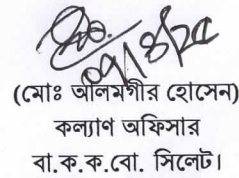 (মোঃ আলমগীর হোসেন)
কল্যাণ অফিসার
বা.ক.ক.বো. সিলেট।